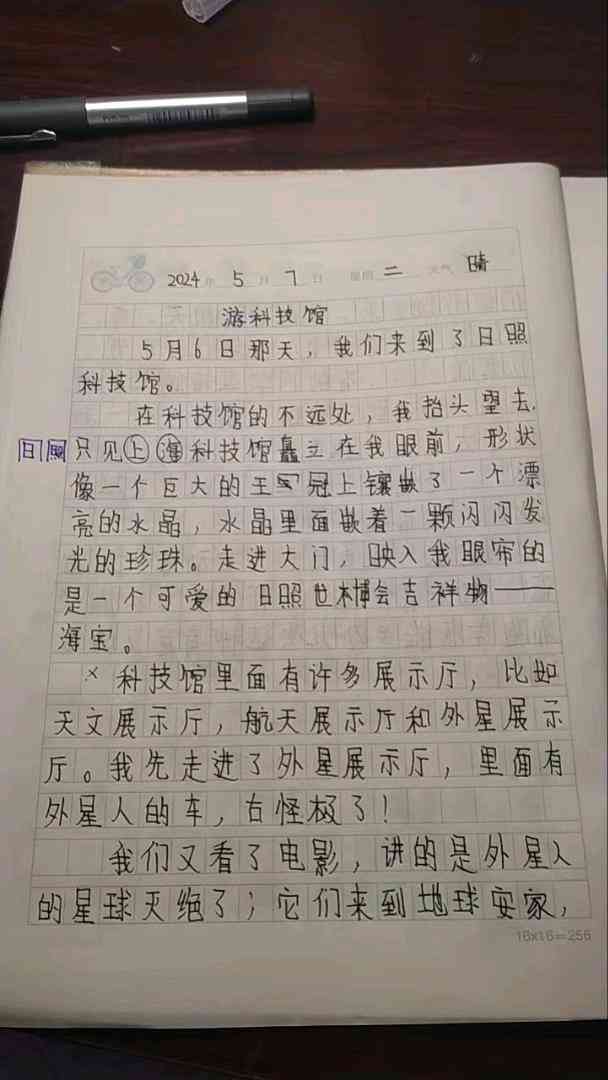 2024年 5月 7日 星期二 天气 晴
游科技馆
5月6日那天，我们来到了日照
科技馆。
在科技馆的不远处，我抬头望去，
日照只见上海科技馆矗立在我眼前，形状
像一个巨大的王冠上镶嵌了一个漂
亮的水晶，水晶里面嵌着一颗闪闪发
光的珍珠。走进大门，映入我眼帘的
是一个可爱的日照世博会吉祥物——
海宝。
× 科技馆里面有许多展示厅，比如
天文展示厅，航天展示厅和外星展示
厅。我先走进了外星展示厅，里面有
外星人的车，古怪极了！
我们又看了电影，讲的是外星人
的星球灭绝了；它们来到地球安家，
16×16=256